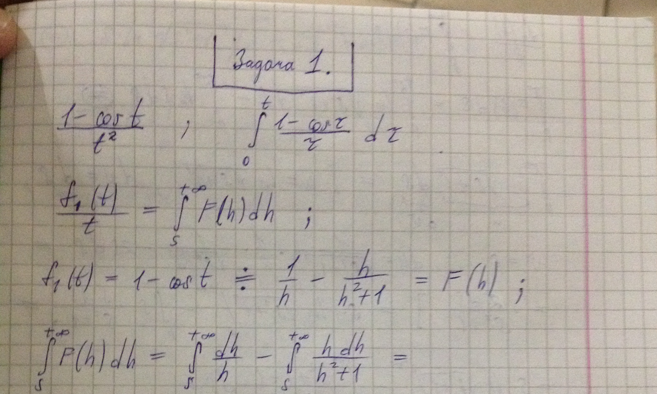 Задача 1.
(1 - cos t)/t² ; ∫₀ᵗ (1 - cos τ)/τ dτ
f₁(t)/t = ∫ₛ⁺∞ F(h)dh ;
f₁(t) = 1 - cos t ≑ 1/h - h/(h²+1) = F(h) ;
∫ₛ⁺∞ F(h)dh = ∫ₛ⁺∞ dh/h - ∫ₛ⁺∞ h dh/(h²+1) =